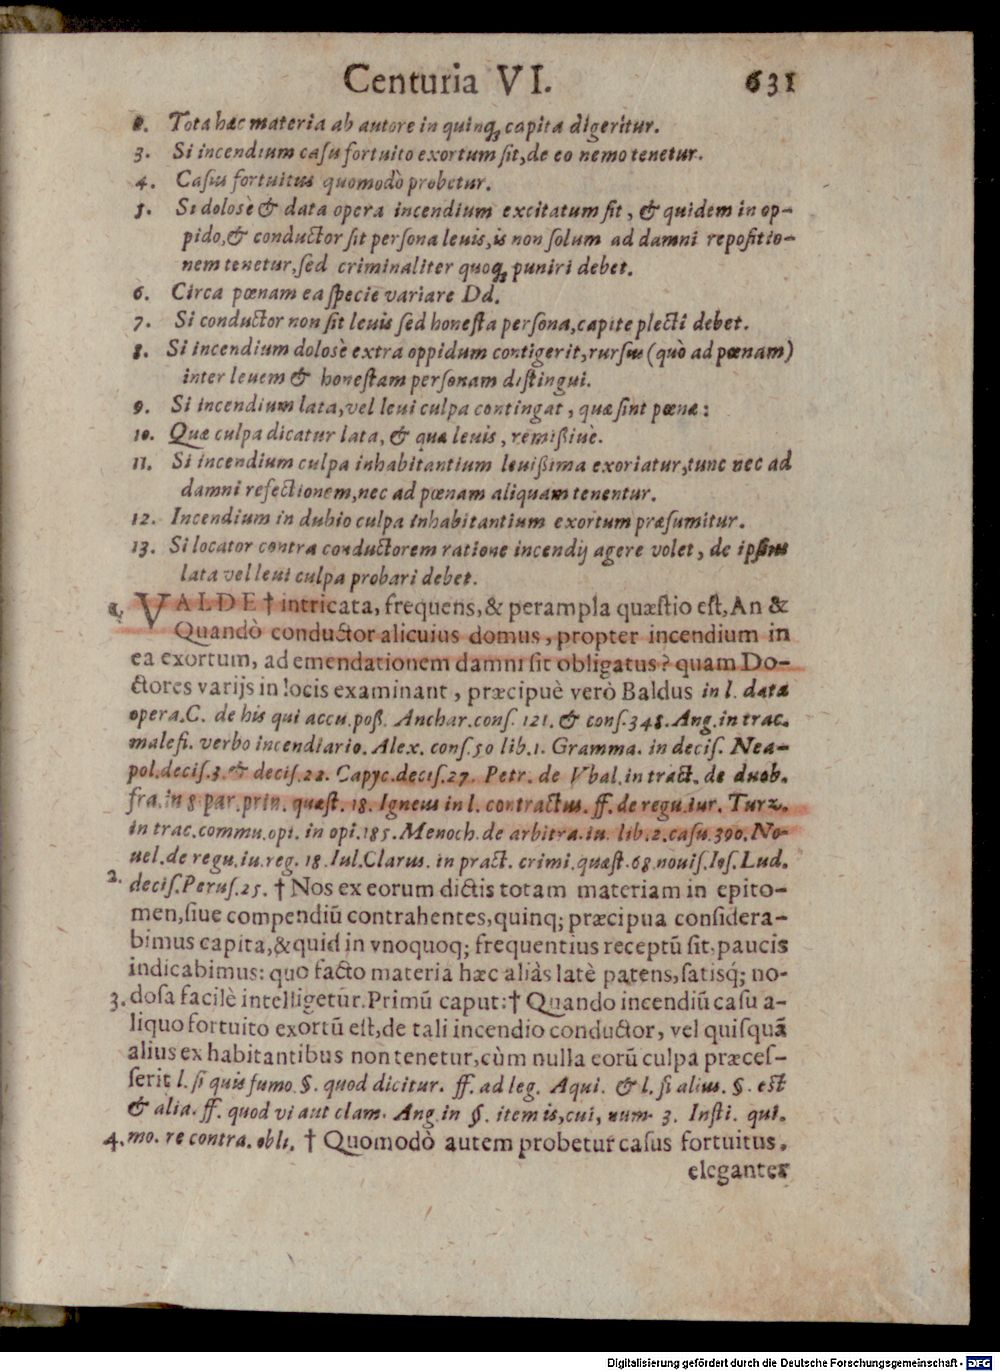 Centuria VI. 631
2. Tota hæc materia ab autore in quinq; capita digeritur.
3. Si incendium casu fortuito exortum sit, de eo nemo tenetur.
4. Casus fortuitus quomodò probetur.
5. Si dolosè & data opera incendium excitatum sit, & quidem in op-
pido, & conductor sit persona leuis, is non solum ad damni repositio-
nem tenetur, sed criminaliter quoq; puniri debet.
6. Circa pœnam ea specie variare Dd.
7. Si conductor non sit leuis sed honesta persona, capite plecti debet.
8. Si incendium dolosè extra oppidum contigerit, rursus (quò ad pœnam)
inter leuem & honestam personam distingui.
9. Si incendium lata, vel leui culpa contingat, quæ sint pœnæ:
10. Quæ culpa dicatur lata, & qua leuis, remißiuè.
11. Si incendium culpa inhabitantium leuißima exoriatur, tunc nec ad
damni refectionem, nec ad pœnam aliquam tenentur.
12. Incendium in dubio culpa inhabitantium exortum præsumitur.
13. Si locator contra conductorem ratione incendij agere volet, de ipsius
lata vel leui culpa probari debet.
VALDE † intricata, frequens, & perampla quæstio est, An &
Quandò conductor alicuius domus, propter incendium in
ea exortum, ad emendationem damni sit obligatus? quam Do-
ctores varijs in locis examinant, præcipuè verò Baldus in l. data
opera. C. de his qui accu. poß. Anchar. cons. 121. & cons. 348. Ang. in trac.
malefi. verbo incendiario. Alex. cons. 50 lib. 1. Gramma. in decis. Nea-
pol. decis. 3. & decis. 22. Capyc. decis. 27. Petr. de Vbal. in tract. de duob.
fra. in 8 par. prin. quæst. 18. Igneus in l. contractus. ff. de regu. iur. Turz.
in trac. commu. opi. in opi. 185. Menoch. de arbitra. iu. lib. 2. casu. 390. No-
uel. de regu. iu. reg. 18. Iul. Clarus. in pract. crimi. quæst. 68. nouis. Ios. Lud.
2. decis. Perus. 25. † Nos ex eorum dictis totam materiam in epito-
men, siue compendiũ contrahentes, quinq; præcipua considera-
bimus capita, & quid in vnoquoq; frequentius receptũ sit, paucis
indicabimus: quo facto materia hæc aliàs latè patens, satisq́; no-
3. dosa facilè intelligetur. Primũ caput: † Quando incendiũ casu a-
liquo fortuito exortũ est, de tali incendio conductor, vel quisquã
alius ex habitantibus non tenetur, cùm nulla eorũ culpa præces-
serit l. si quis fumo. §. quod dicitur. ff. ad leg. Aqui. & l. si alius. §. est
& alia. ff. quod vi aut clam. Ang. in §. item is, cui, num. 3. Insti. qui.
4. mo. re contra. obli. † Quomodò autem probetur casus fortuitus.
eleganter
Digitalisierung gefördert durch die Deutsche Forschungsgemeinschaft - DFG